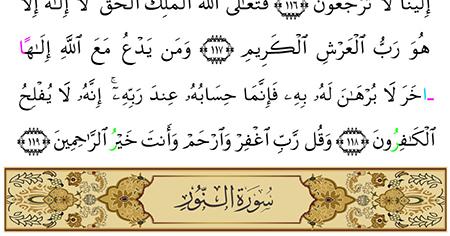 إِلَيْنَا لَا تُرْجَعُونَ ﴿١١٦﴾ فَتَعَٰلَى ٱللَّهُ ٱلْمَلِكُ ٱلْحَقُّ لَآ إِلَٰهَ إِلَّا
هُوَ رَبُّ ٱلْعَرْشِ ٱلْكَرِيمِ ﴿١١٧﴾ وَمَن يَدْعُ مَعَ ٱللَّهِ إِلَٰهًا
ـاخَرَ لَا بُرْهَٰنَ لَهُۥ بِهِۦ فَإِنَّمَا حِسَابُهُۥ عِندَ رَبِّهِۦٓ ۚ إِنَّهُۥ لَا يُفْلِحُ
ٱلْكَٰفِرُونَ ﴿١١٨﴾ وَقُل رَّبِّ ٱغْفِرْ وَٱرْحَمْ وَأَنتَ خَيْرُ ٱلرَّٰحِمِينَ ﴿١١٩﴾
سُورَةُ النُّورِ